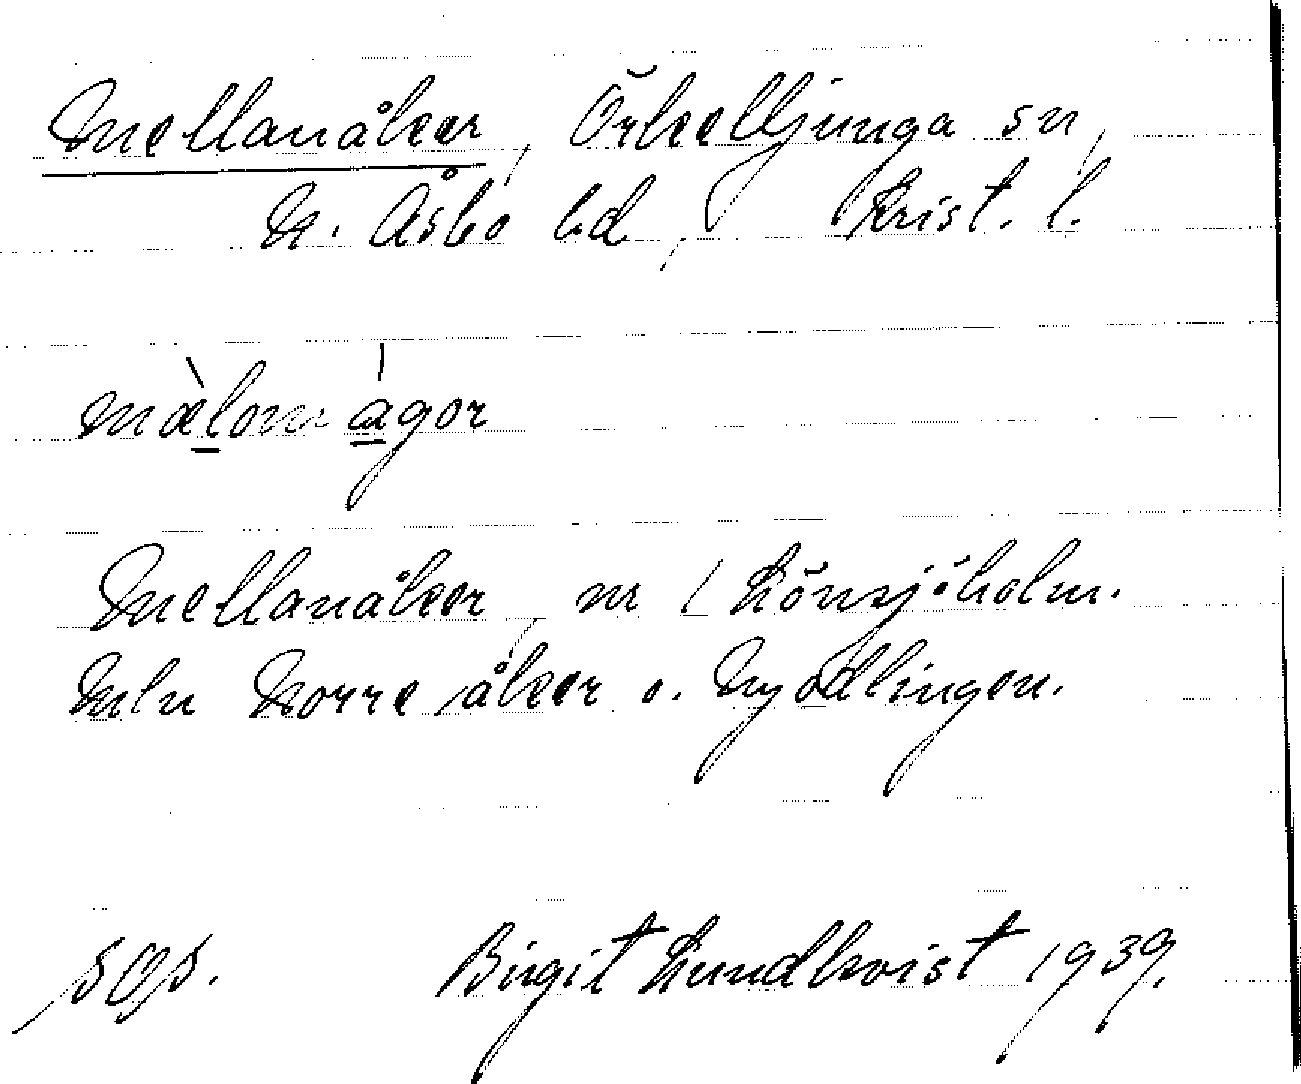 Mellanåker, Örkelljunga sn,
N. Åsbo hd, Krist. l.
mælom ágor
Mellanåker, nr 1 Lönsjöholm.
Mln Norre åker o. Nyodlingen.
sas. Birgit Lundkvist 1939.